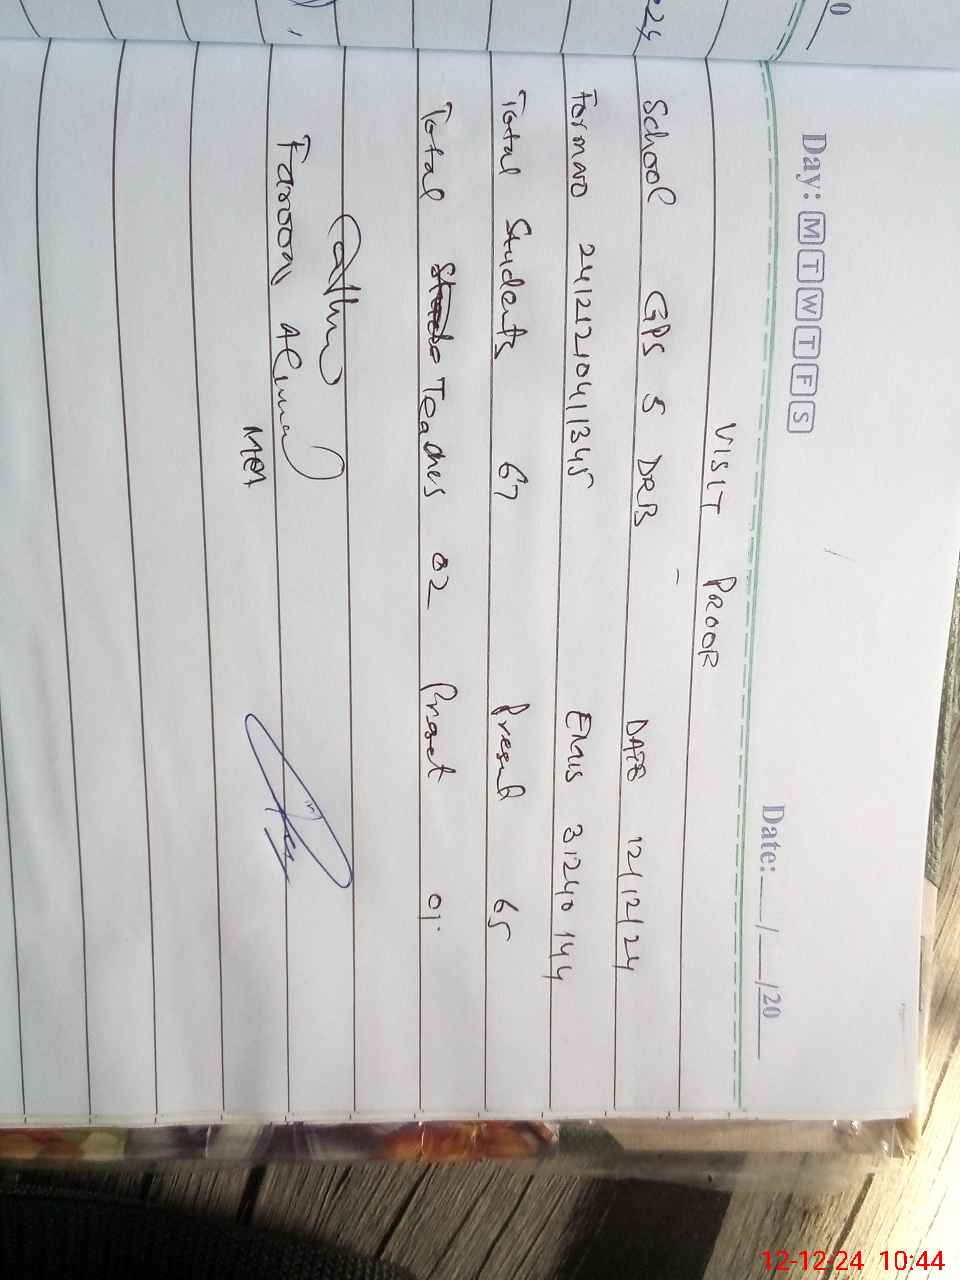 Day: M T W T F S Date: __/__/20__
VISIT PROOF
School GPS 5 DRB DATE 12/12/24
Formno 24121210411345 EMIS 31240144
Total Students 67 Present 65
Total Teaches 02 Prsect 01
Farooq Ahmad
MEA
12-12-24 10:44